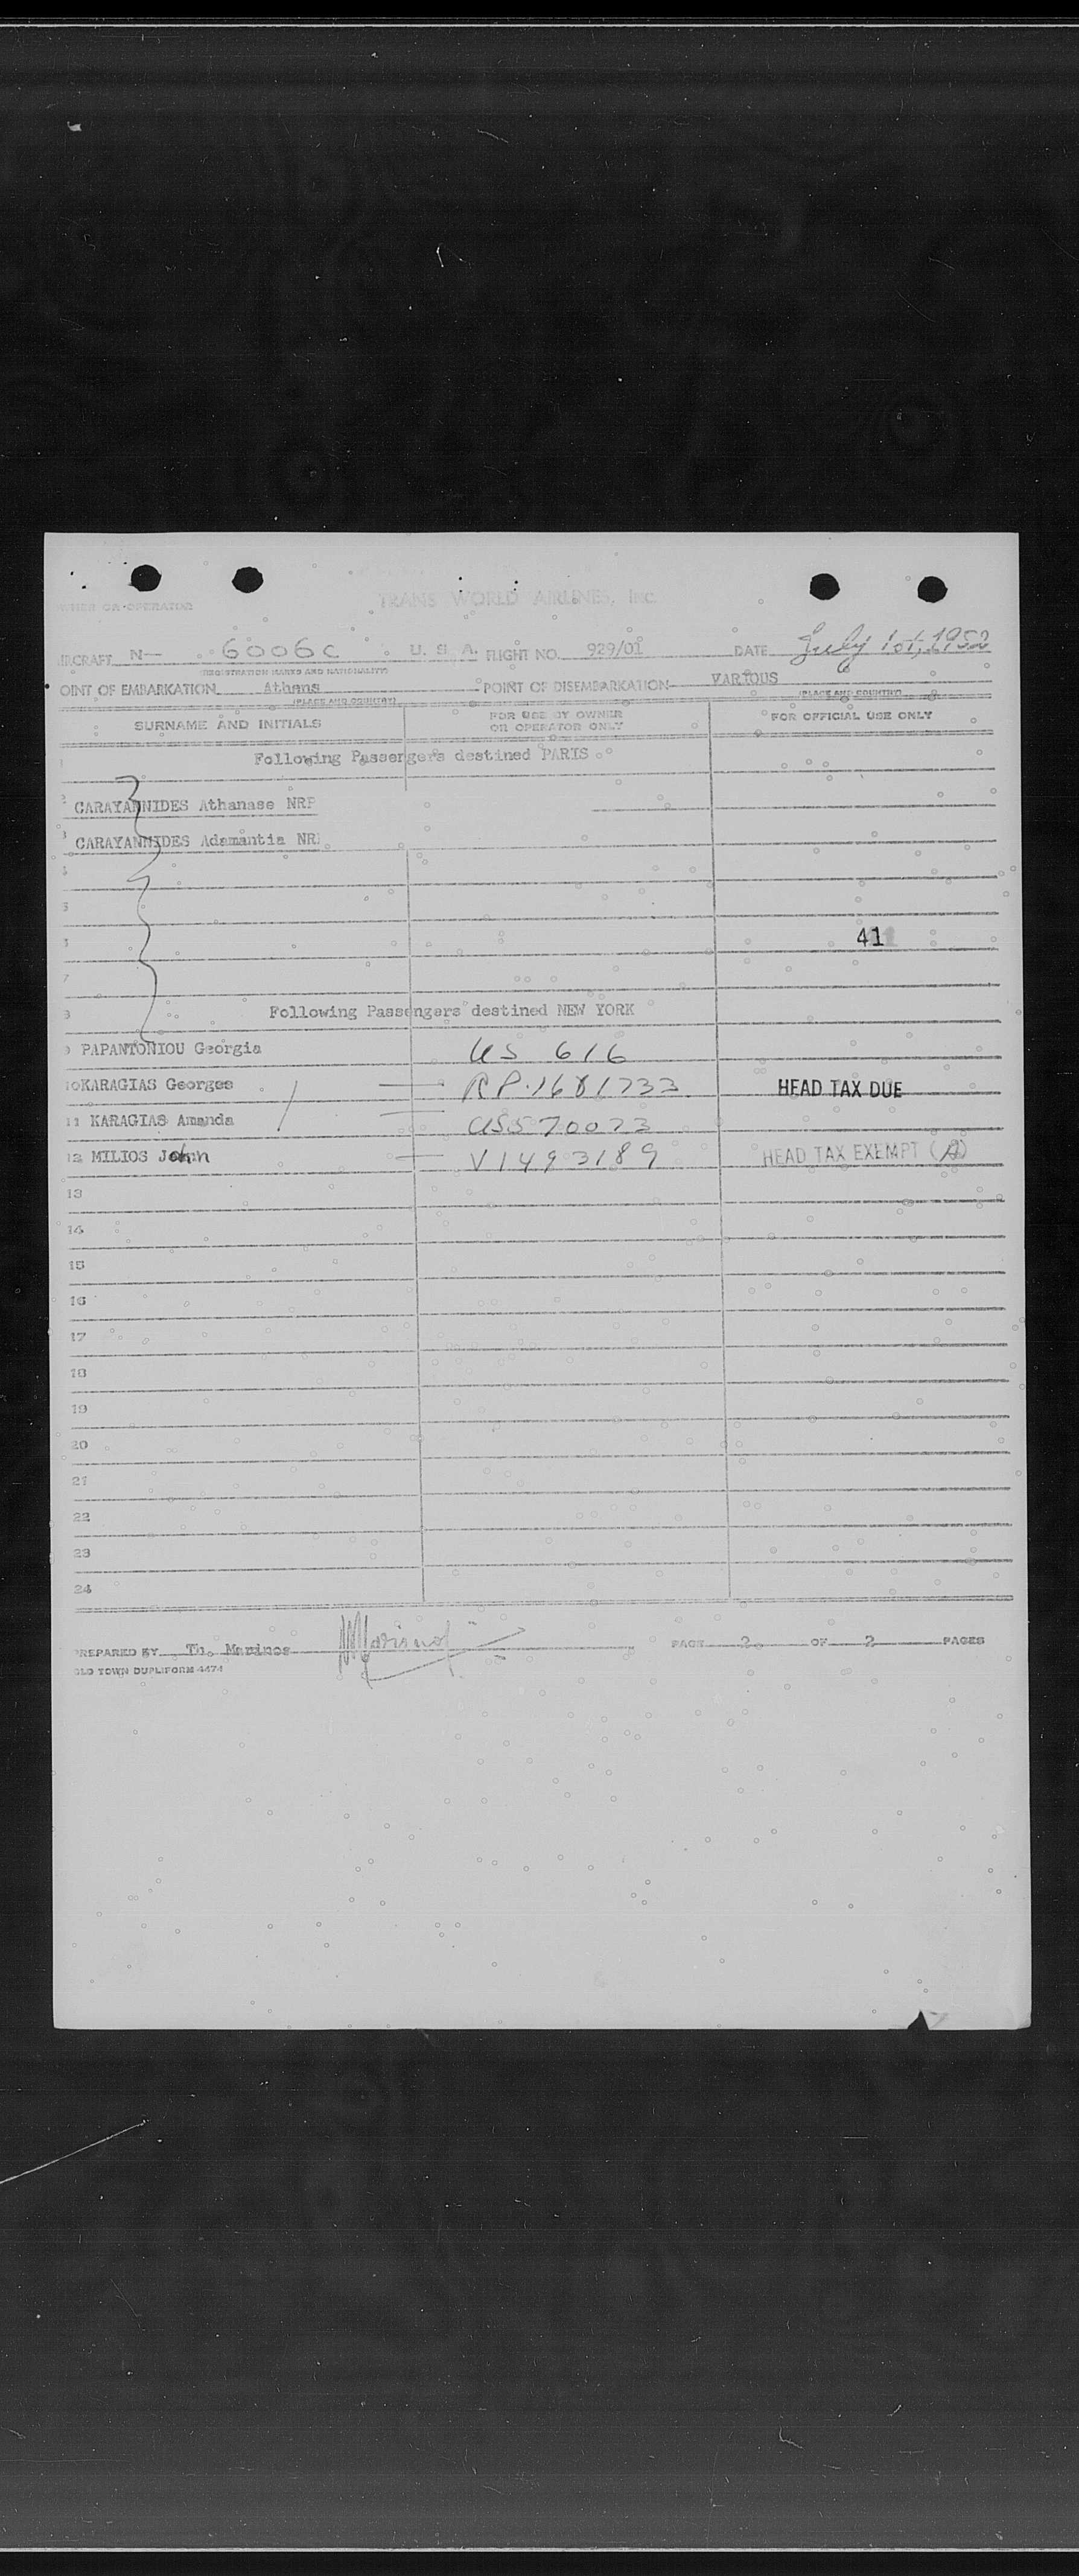 WNER OR OPERATOR TRANS WORLD AIRLINES, Inc.
IRCRAFT N— 6006C U. S. A. FLIGHT NO. 929/01 DATE July 1st, 1952
(REGISTRATION MARKS AND NATIONALITY)
OINT OF EMBARKATION Athens POINT OF DISEMBARKATION VARIOUS
(PLACE AND COUNTRY) (PLACE AND COUNTRY)
SURNAME AND INITIALS FOR USE BY OWNER OR OPERATOR ONLY FOR OFFICIAL USE ONLY
Following Passengers destined PARIS
2 CARAYANNIDES Athanase NRP
3 CARAYANNIDES Adamantia NR
41
7
8 Following Passengers destined NEW YORK
9 PAPANTONIOU Georgia US 616
10 KARAGIAS Georges RP.1681733 HEAD TAX DUE
11 KARAGIAS Amanda US570073
12 MILIOS John V1493189 HEAD TAX EXEMPT (A)
13
14
15
16
17
18
19
20
21
22
23
24
PREPARED BY Th. Marinos Marinos PAGE 2. OF 2 PAGES
OLD TOWN DUPLIFORM 4474